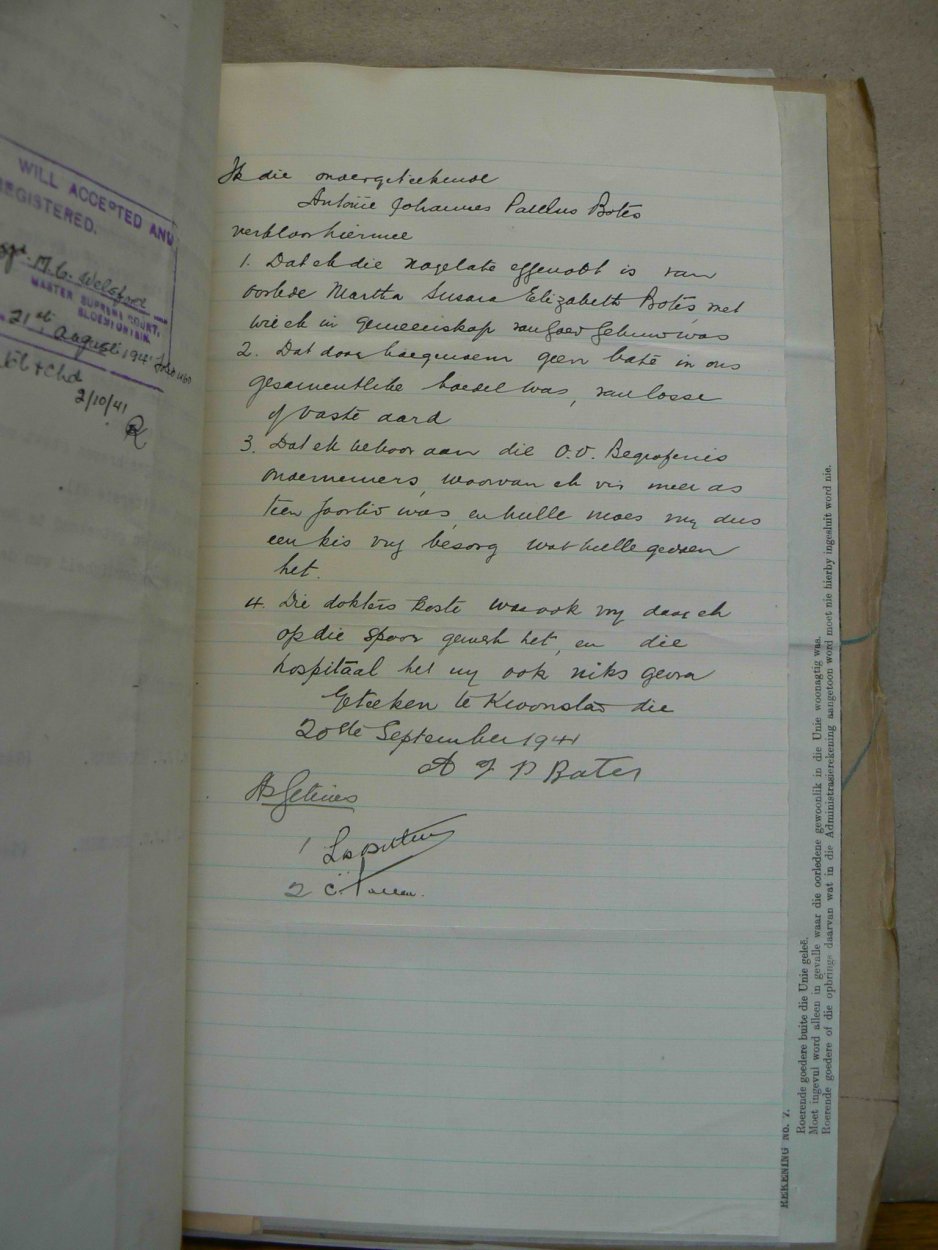 WILL ACCEPTED AND
REGISTERED.
MASTER SUPREME COURT,
BLOEMFONTEIN.
21st August 1941
2/10/41
Ik die ondergetekende
Antonie Johannes Paulus Botes
verklaar hiermee
1. Dat ek die nagelate eggenoot is van
oorlede Martha Susara Elizabeth Botes met
wie ek in gemeenskap van Goed Gehuwd was
2. Dat daar hoegenaam geen bate in ons
gesamentlike boedel was, van losse
of vaste aard
3. Dat ek behoor aan die O.V. Begrafenis
ondernemers, waarvan ek vir meer as
tien Jaar lid was, en hulle moes my dus
een kis vry besorg wat hulle gedoen
het.
4. Die dokters koste was ook vry daar ek
op die spoor gewerk het, en die
hospitaal het my ook niks gevra
Geteeken te Kroonstad die
20ste September 1941
A J P Botes
As Getuies
1
2 C.
REKENING NO. 7.
Roerende goedere buite die Unie geleë.
Moet ingevul word alleen in gevalle waar die oorledene gewoonlik in die Unie woonagtig was.
Roerende goedere of die opbrings daarvan wat in die Administrasierekening aangetoon word moet nie hierby ingesluit word nie.